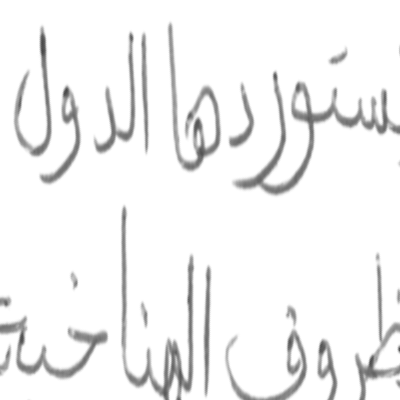 ستوردها الدول
ظروف المناخية